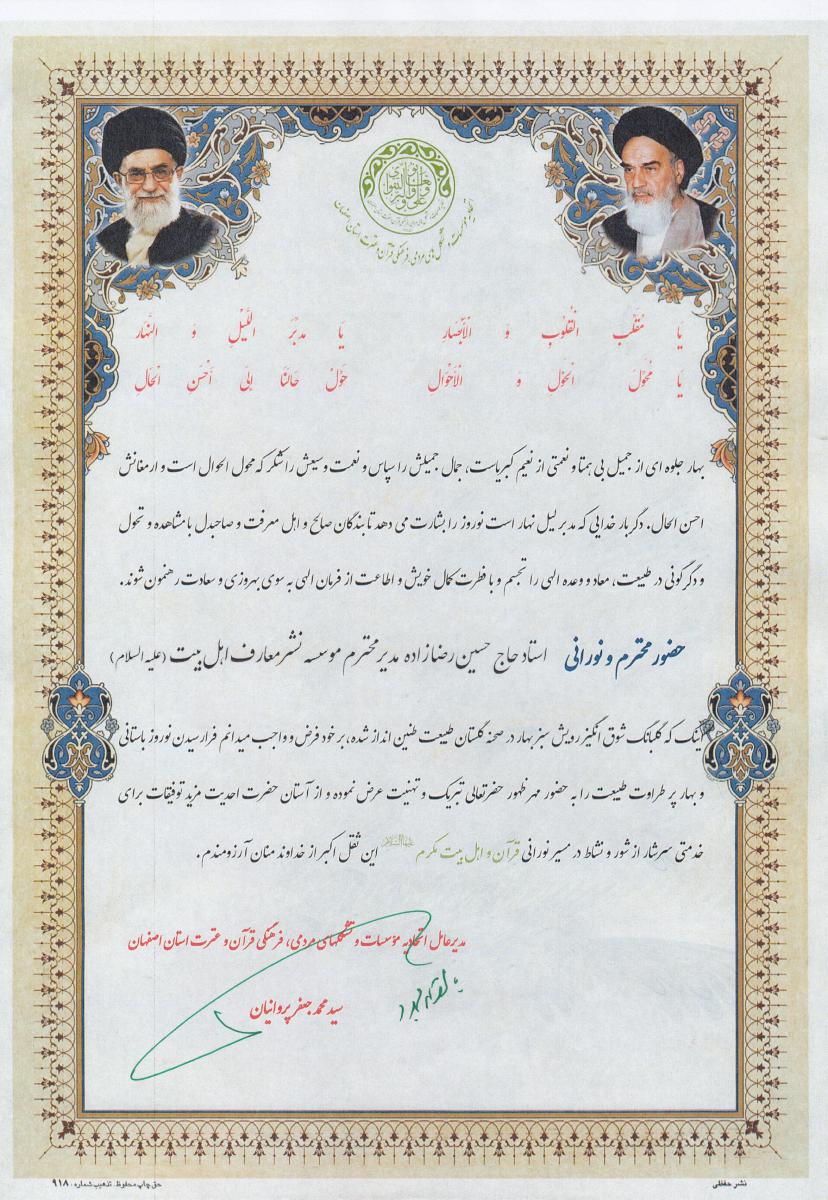 تعاونوا علی البر و التقوی
اتحادیه موسسات و تشکل های مردمی، فرهنگی قرآن و عترت استان اصفهان
یَا مُقَلِّبَ الْقُلُوبِ وَ الْأَبْصَارِ یَا مُدَبِّرَ اللَّیْلِ وَ النَّهَارِ
یَا مُحَوِّلَ الْحَوْلِ وَ الْأَحْوَالِ حَوِّلْ حَالَنَا إِلَی أَحْسَنِ الْحَالِ
بهار جلوه ای از جمیل بی همتا و نعمتی از نعیم کبریاست، جمال جمیلش را سپاس و نعمت وسیعش را شکر که محول الحوال است و ارمغانش
احسن الحال. دگر بار خدایی که مدبر لیل نهار است نوروز را بشارت می دهد تا بندگان صالح و اهل معرفت و صاحبدل با مشاهده و تحول
و دگرگونی در طبیعت، معاد و وعده الهی را تجسم و با فطرت کمال خویش و اطاعت از فرمان الهی به سوی بهروزی و سعادت رهنمون شوند.
حضور محترم و نورانی استاد حاج حسین رضازاده مدیر محترم موسسه نشر معارف اهل بیت (علیه السلام)
اینک که گلبانگ شوق انگیز رویش سبز بهار در صحنه گلستان طبیعت طنین انداز شده، بر خود فرض و واجب میدانم فرارسیدن نوروز باستانی
و بهار پر طراوت طبیعت را به حضور مهر ظهور حضرتعالی تبریک و تهنیت عرض نموده و از آستان حضرت احدیت مزید توفیقات برای
خدمتی سرشار از شور و نشاط در مسیر نورانی قرآن و اهل بیت مکرم علیهم السلام این ثقل اکبر از خداوند منان آرزومندم.
مدیرعامل اتحادیه مؤسسات و تشکلهای مردمی، فرهنگی قرآن و عترت استان اصفهان
سید محمد جعفر پروانیان
نشر حفظی
حق چاپ محفوظ. تذهیب شماره: ۹۱۸